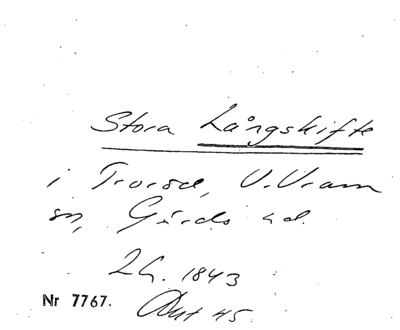 Stora Långskifte
i Troröd, V. Vram
sn, Gärds hd.
2h. 1843
Nr 7767. Aut 45.